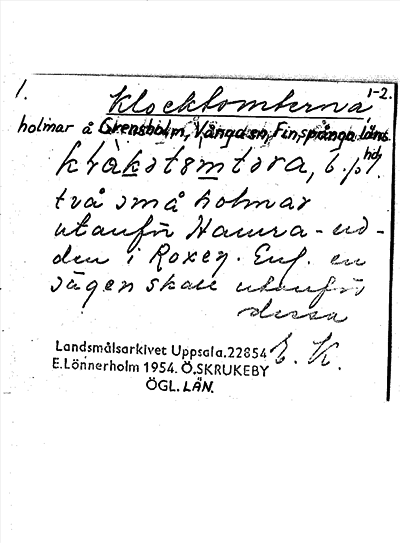 1.
Klocktomterna, 1-2.
holmar å Grensholm, Vånga sn, Finspånga läns
hd.
två små holmar
utanför Hamra-ud-
den i Roxen. Enl. en
sägen skall utanför
dessa
E. K.
Landsmålsarkivet Uppsala. 22854
E. Lönnerholm 1954. Ö. SKRUKEBY
ÖGL. LÄN.